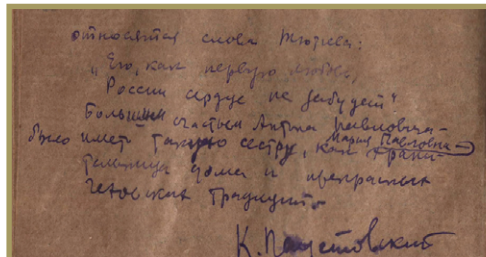 относятся слова Тютчева:
„Его, как первую любовь,
России сердце не забудет“
Большим счастьем Антона Павловича –
было иметь такую сестру, как Мария Павловна – храни-
тельница дома и прекрасных
чеховских традиций.
К. Паустовский